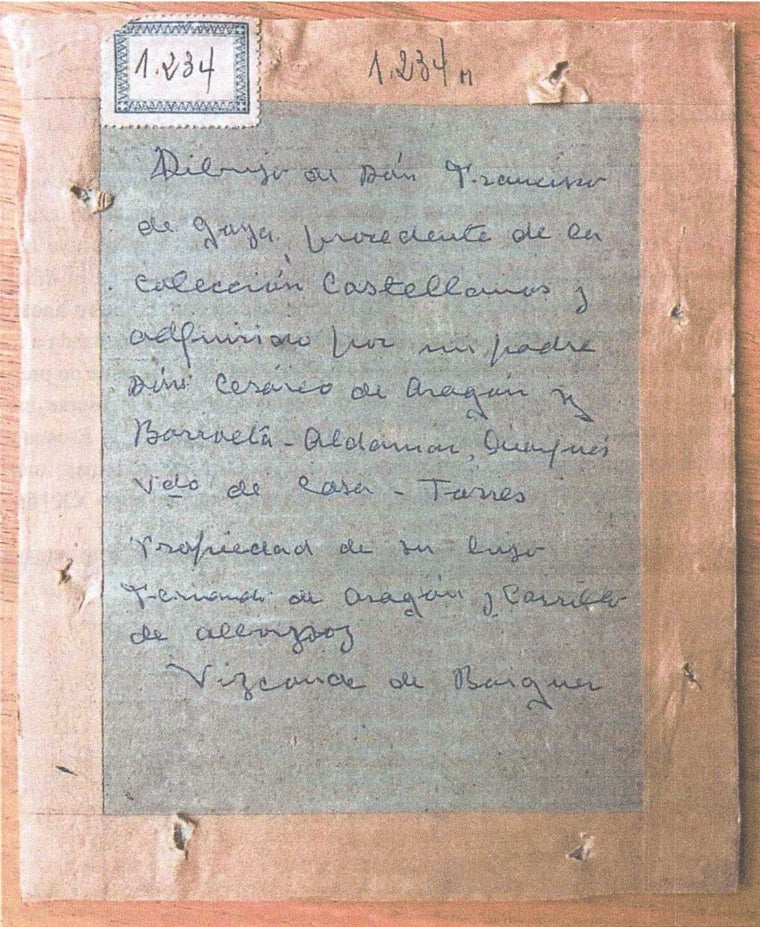 1.234
1.234
Dibujo de Dón Francisco
de Goya, procedente de la
colección Castellanos y
adquirido por mi padre
Dón Cesáreo de Aragón y
Barroeta-Aldamar, Marqués
Vdo de Casa-Torres
Propiedad de su hijo
Fernando de Aragón y Carrillo
de Albornoz
Vizconde de Baiguer